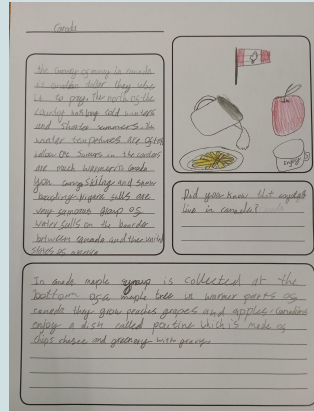 Canada
the curency of money in canada
is canadian dollar they use
is to pay. The north of the
country has long cold winters
and shorter summers. In
winter tempetures are often
bellow 0c Sumers in the
are much warmer in canada
you can go skiing and snow
boarding. niagara falls are
very famous group of
water falls on the boarder
between canada and ther united
states of america
Enjoy
Did you know that
live in canada?
In canada maple syroup is collected at the
bottom of a maple tree in warmer parts of
canada they grow peaches grapes and apples. canadians
enjoy a dish called poutine which is made of
chips cheese and with gravey